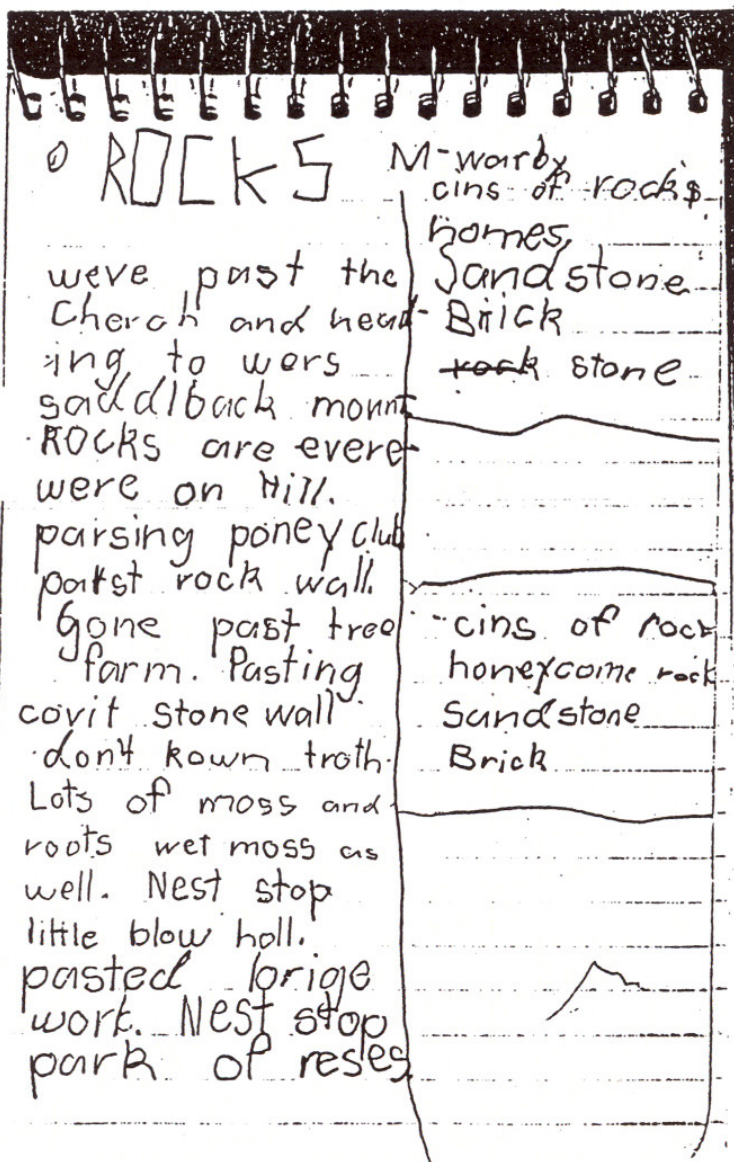 ROCKS
weve past the
Cherch and head-
ing to wers
saddlback mount
ROCKS are evere-
were on Hill.
parsing poney club
patst rock wall.
Gone past tree
farm. Pasting
covit stone wall
don't kown troth.
Lots of moss and
roots wet moss as
well. Nest stop
little blow holl.
pasted brige
work. Nest stop
park of reses
M-warby
cins of rocks
homes,
Sandstone
Brick
rock stone
-cins of rock
honeycome rock
Sandstone
Brick